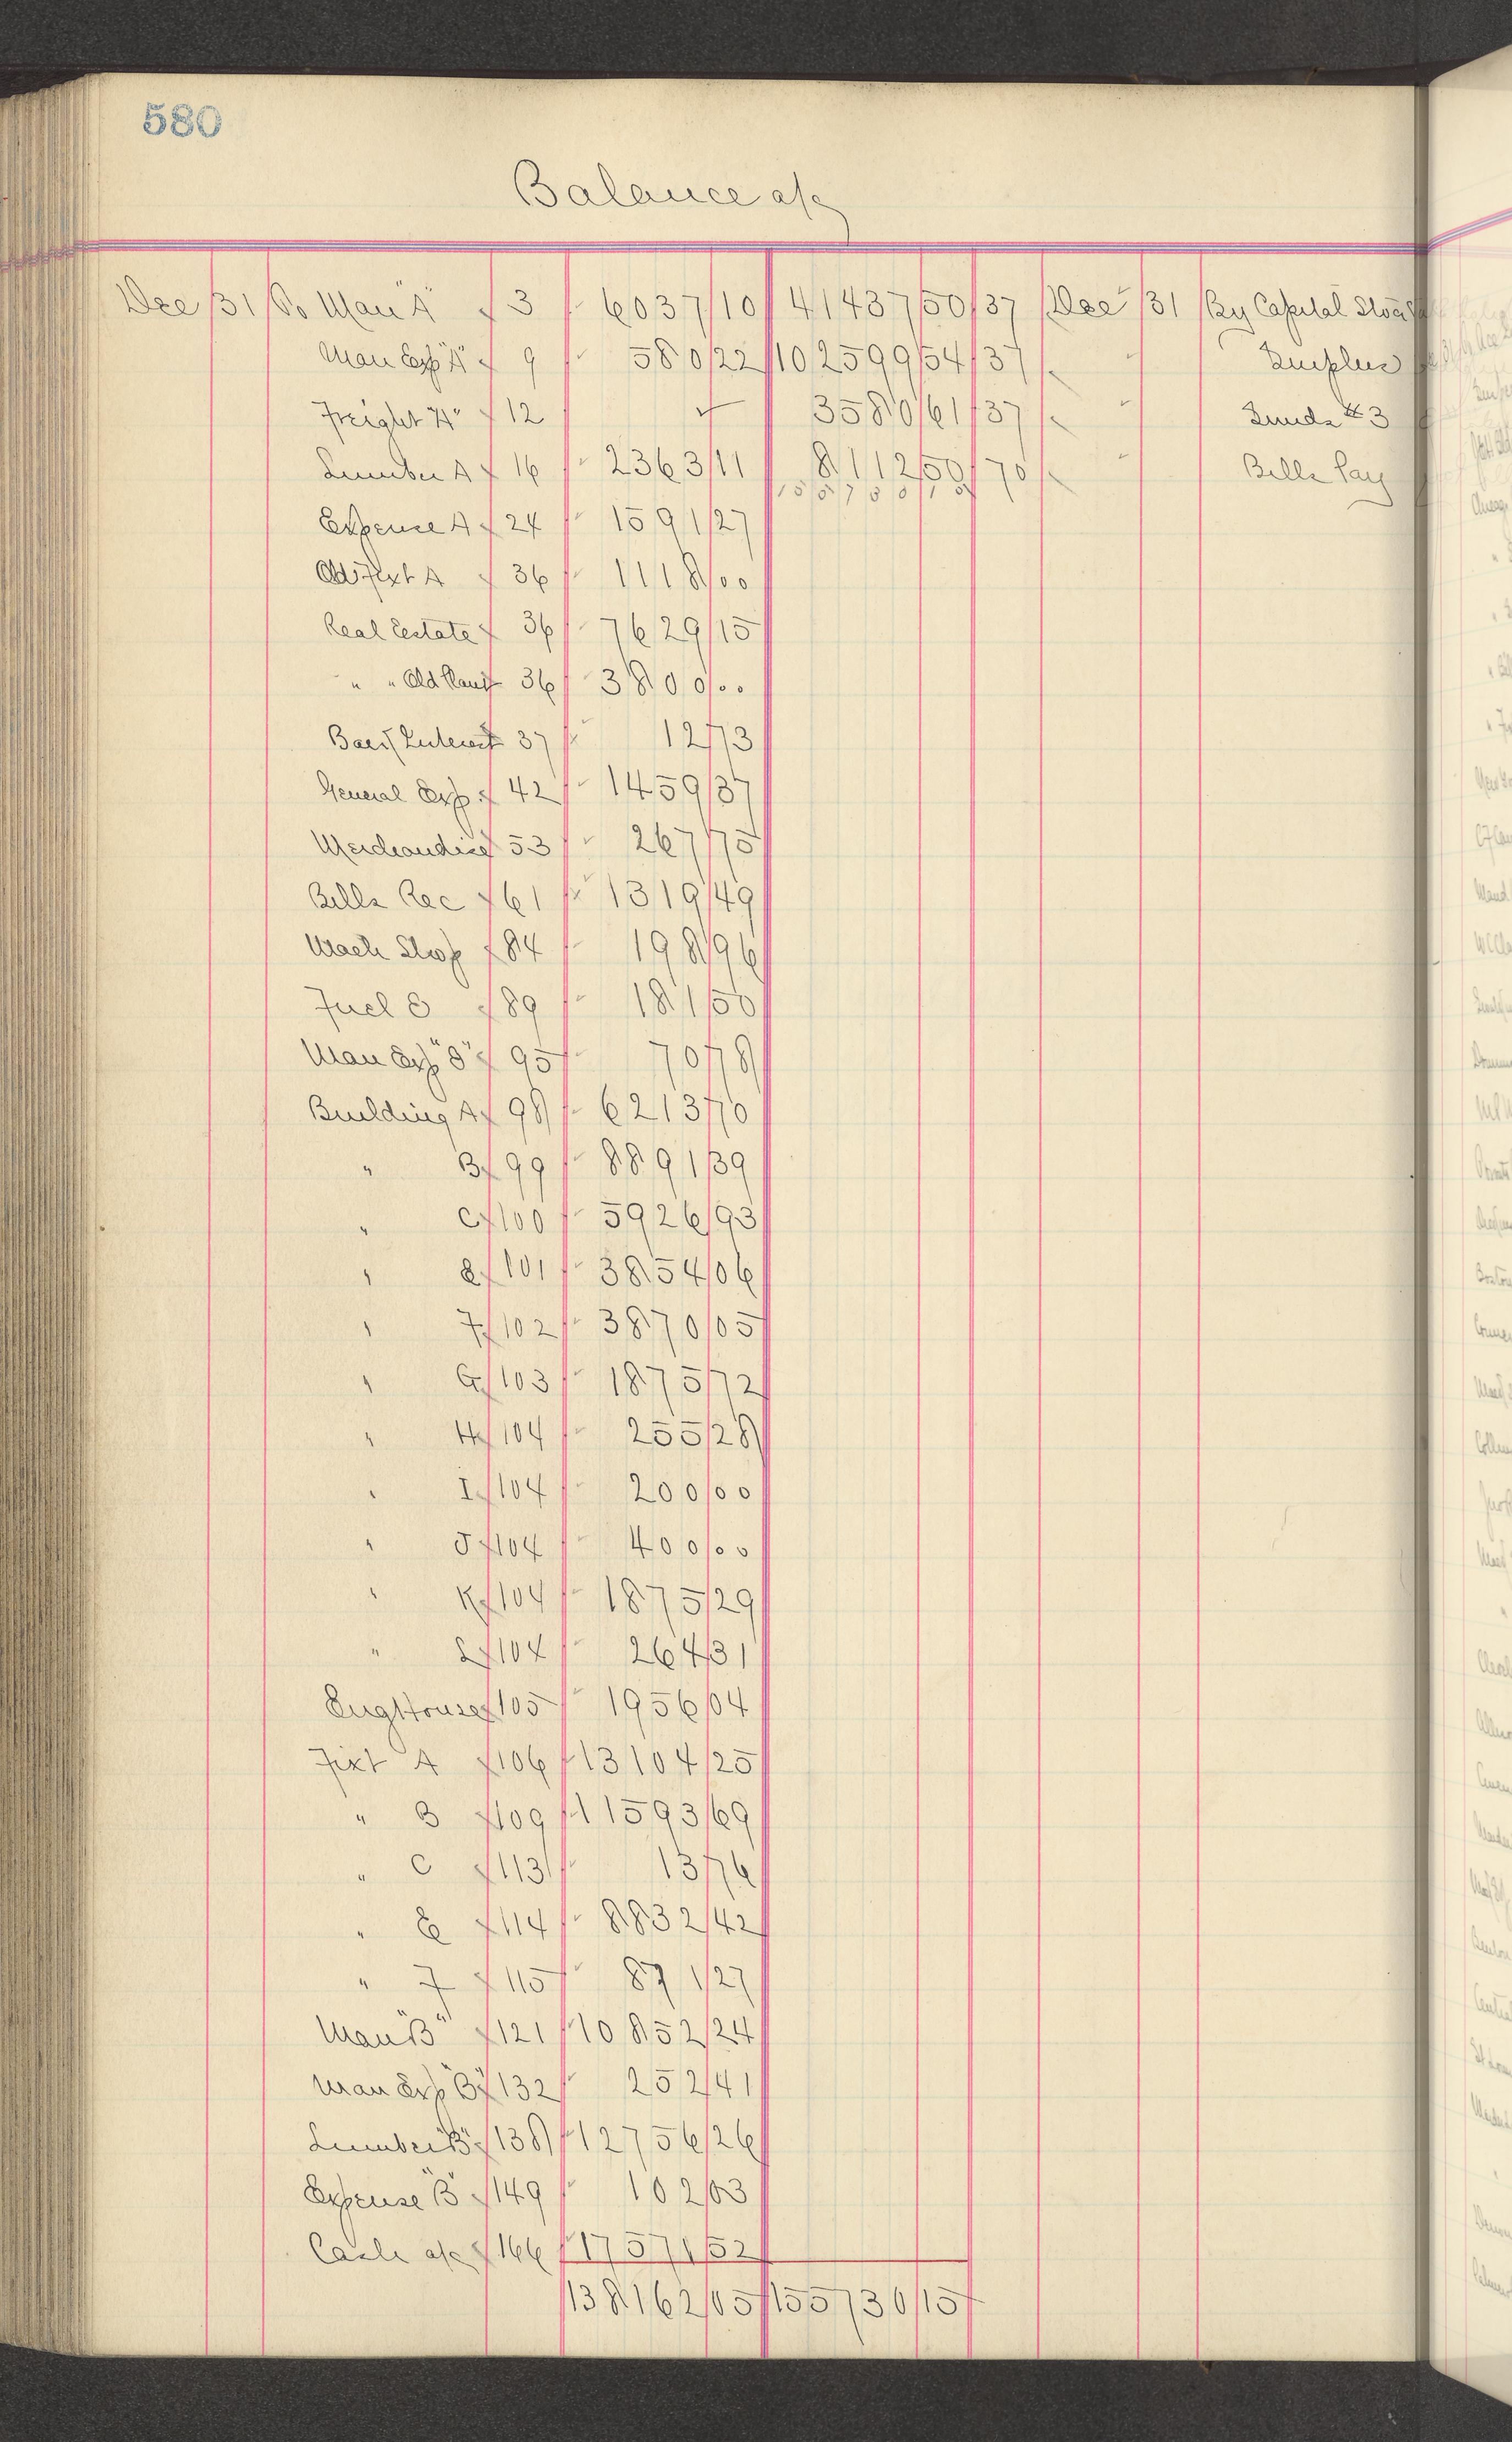 580
Balance a/c
Dec 31 To Man "A" 3 6037 10 41437 50 37 Dec 31 By Capital Stock
Man Exp "A" 9 580 22 102599 54 37 " Surplus
Freight "A" 12 ✓ 3580 61 37 " Sunds #3
Lumber A 16 2363 11 8112 50 70 Bills Pay
155730 15
Expense A 24 1591 27
Old Fixt A 36 1118 00
Real Estate 36 7629 15
" " Old Plant 36 3800 00
Interest 37 12 73
General Exp 42 1459 37
Merchandise 53 267 75
Bills Rec 61 1319 49
Mach Shop 84 198 96
Fuel B 89 181 50
Man Exp "B" 95 70 78
Building A 98 6213 70
" B 99 8891 39
" C 100 5926 93
" E 101 3854 06
" F 102 3870 05
" G 103 1875 72
" H 104 255 28
" I 104 200 00
" J 104 400 00
" K 104 1875 29
" L 104 264 31
Eng House 105 1956 04
Fixt A 106 13104 25
" B 109 11593 69
" C 113 13 76
" E 114 8832 42
" F 115 871 27
Man "B" 121 10852 24
Man Exp "B" 132 252 41
Lumber "B" 138 12756 26
Expense "B" 149 102 03
Cash a/c 166 17571 52
138162 05 155730 15